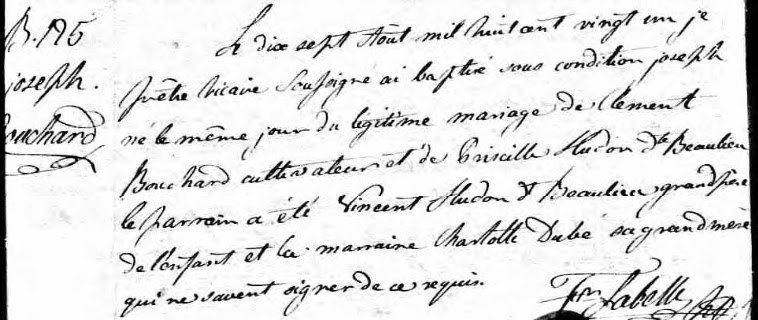 B. 125
joseph.
Bouchard
Le dix sept Aout mil huit cent vingt un je
prêtre vicaire soussigné ai baptisé sous condition joseph
né le même jour du légitime mariage de Clement
Bouchard cultivateur et de Priscille Hudon dte Beaulieu
le parrain a été Vincent Hudon dt Beaulieu grandpère
de l'enfant et la marraine Charlotte Dubé sa grandmère
qui ne savent signer de ce requis.
Frs Labelle Ptre